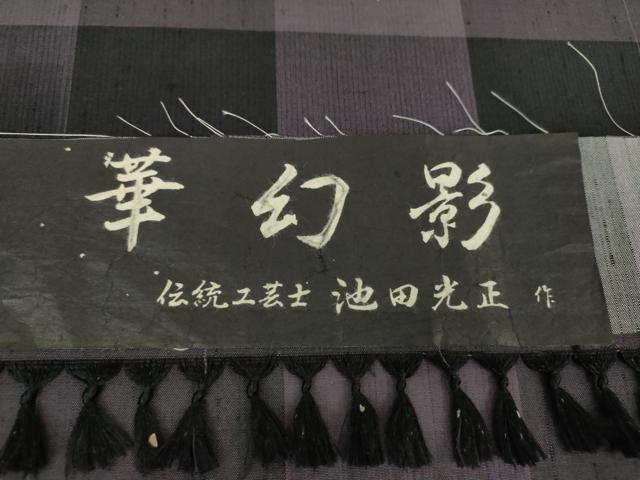 華幻影
伝統工芸士 池田光正 作